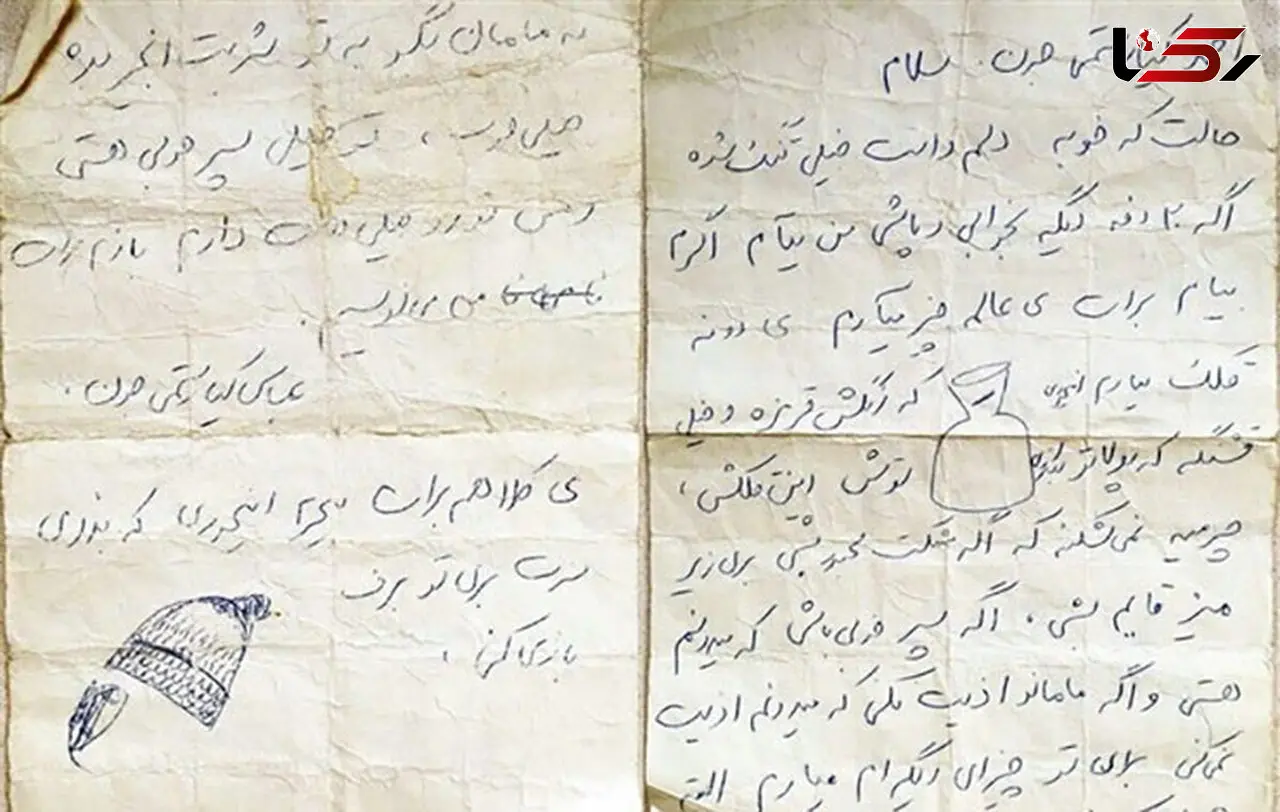 رکنا
احمد کیارستمی جون. سلام
حالت که خوبه دلم واست خیلی تنگ شده
اگه ۲ دفه دیگه بخوابی و پاشی من میآم اگرم
بیام برات ی عالمه چیز میآرم ی دونه
قلک میارم اینجوری که رنگش قرمزه و خیلی
قشنگه که پولاتو توش این قلکش،
چرمیه نمی‌شکنه که اگه شکست مجبور بشی بری زیر
میز قایم بشی، اگه پسر خوبی باشی که میدونم
هستی و اگه مامانو اذیت نکنی که میدونم اذیت
نمی‌کنی برای تو چیزای دیگه‌ام میارم البته
به مامان بگو به تو شربت انجیر بده
خیلی خوب، تو خیلی پسر خوبی هستی
و من تو رو خیلی دوست دارم بازم برات
می‌نویسم.
عباس کیارستمی جون.
ی کلاه هم برات میخرم اینجوری که بذاری
سرت بری تو برف
بازی کنی.